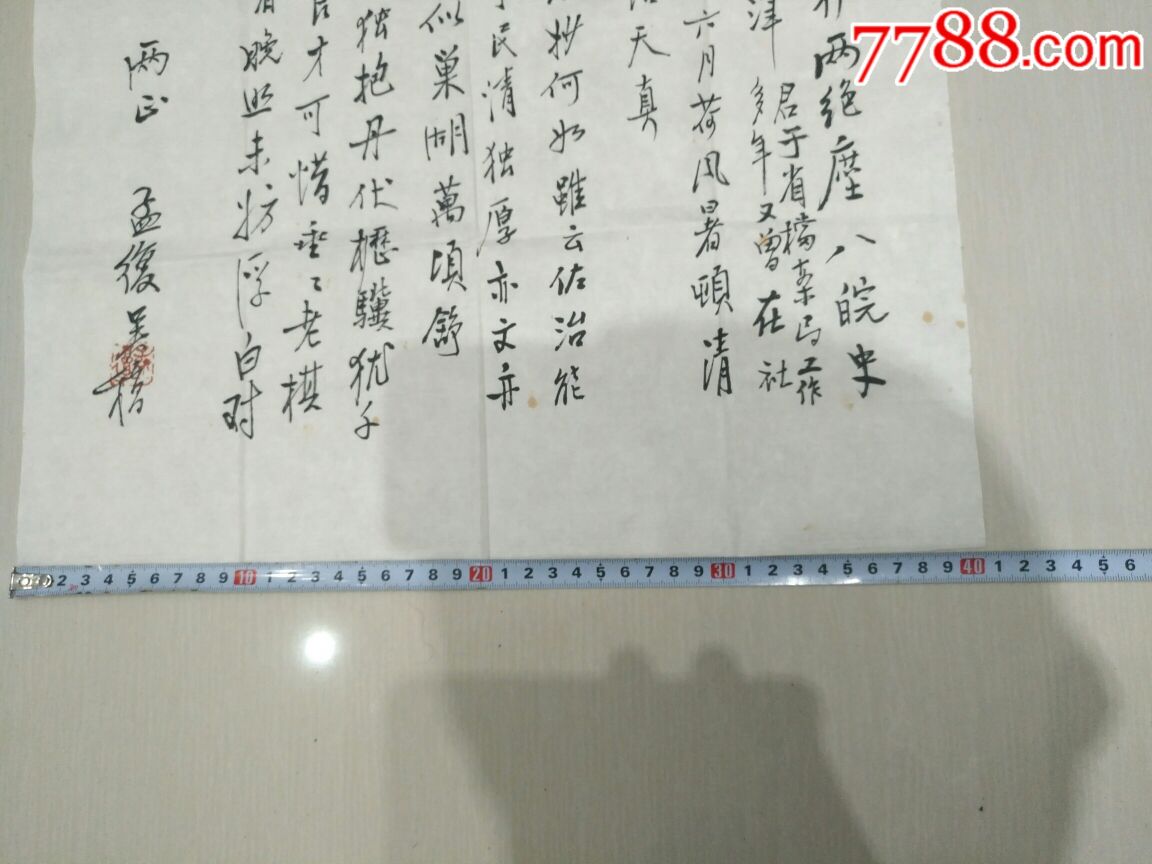 7788.com
两绝尘八皖史
君于省档案局工作
津多年又曾在社
六月荷风暑顿清
天真
抄何如虽云佐治能
民清独厚亦文亦
似巢湖萬頃舒
独抱丹伏櫪驥犹子
才可惜垂〻老棋
晚照未妨浮白对
两正 孟復吴
2 3 4 5 6 7 8 9 10 1 2 3 4 5 6 7 8 9 20 1 2 3 4 5 6 7 8 9 30 1 2 3 4 5 6 7 8 9 40 1 2 3 4 5 6